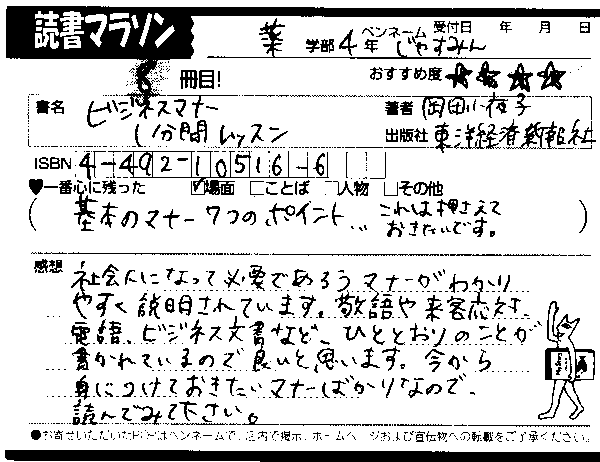 読書マラソン
薬 学部 4 年 ペンネーム じゃすみん 受付日 年 月 日
8 冊目! おすすめ度 ★★★★
書名 ビジネスマナー 著者 岡田小夜子
1分間レッスン 出版社 東洋経済新報社
ISBN 4-492-10516-6
♥一番心に残った ☑場面 □ことば □人物 □その他
(基本のマナー7つのポイント... これは押さえて
おきたいです。)
感想 社会人になって必要であろうマナーがわかり
やすく説明されています。敬語や来客応対、
電話、ビジネス文書など、ひととおりのことが
書かれているので良いと思います。今から
身につけておきたいマナーばかりなので、
読んでみて下さい。
●お寄せいただいたPOPはペンネームで、店内で掲示、ホームページおよび宣伝物への転載をご了承ください。